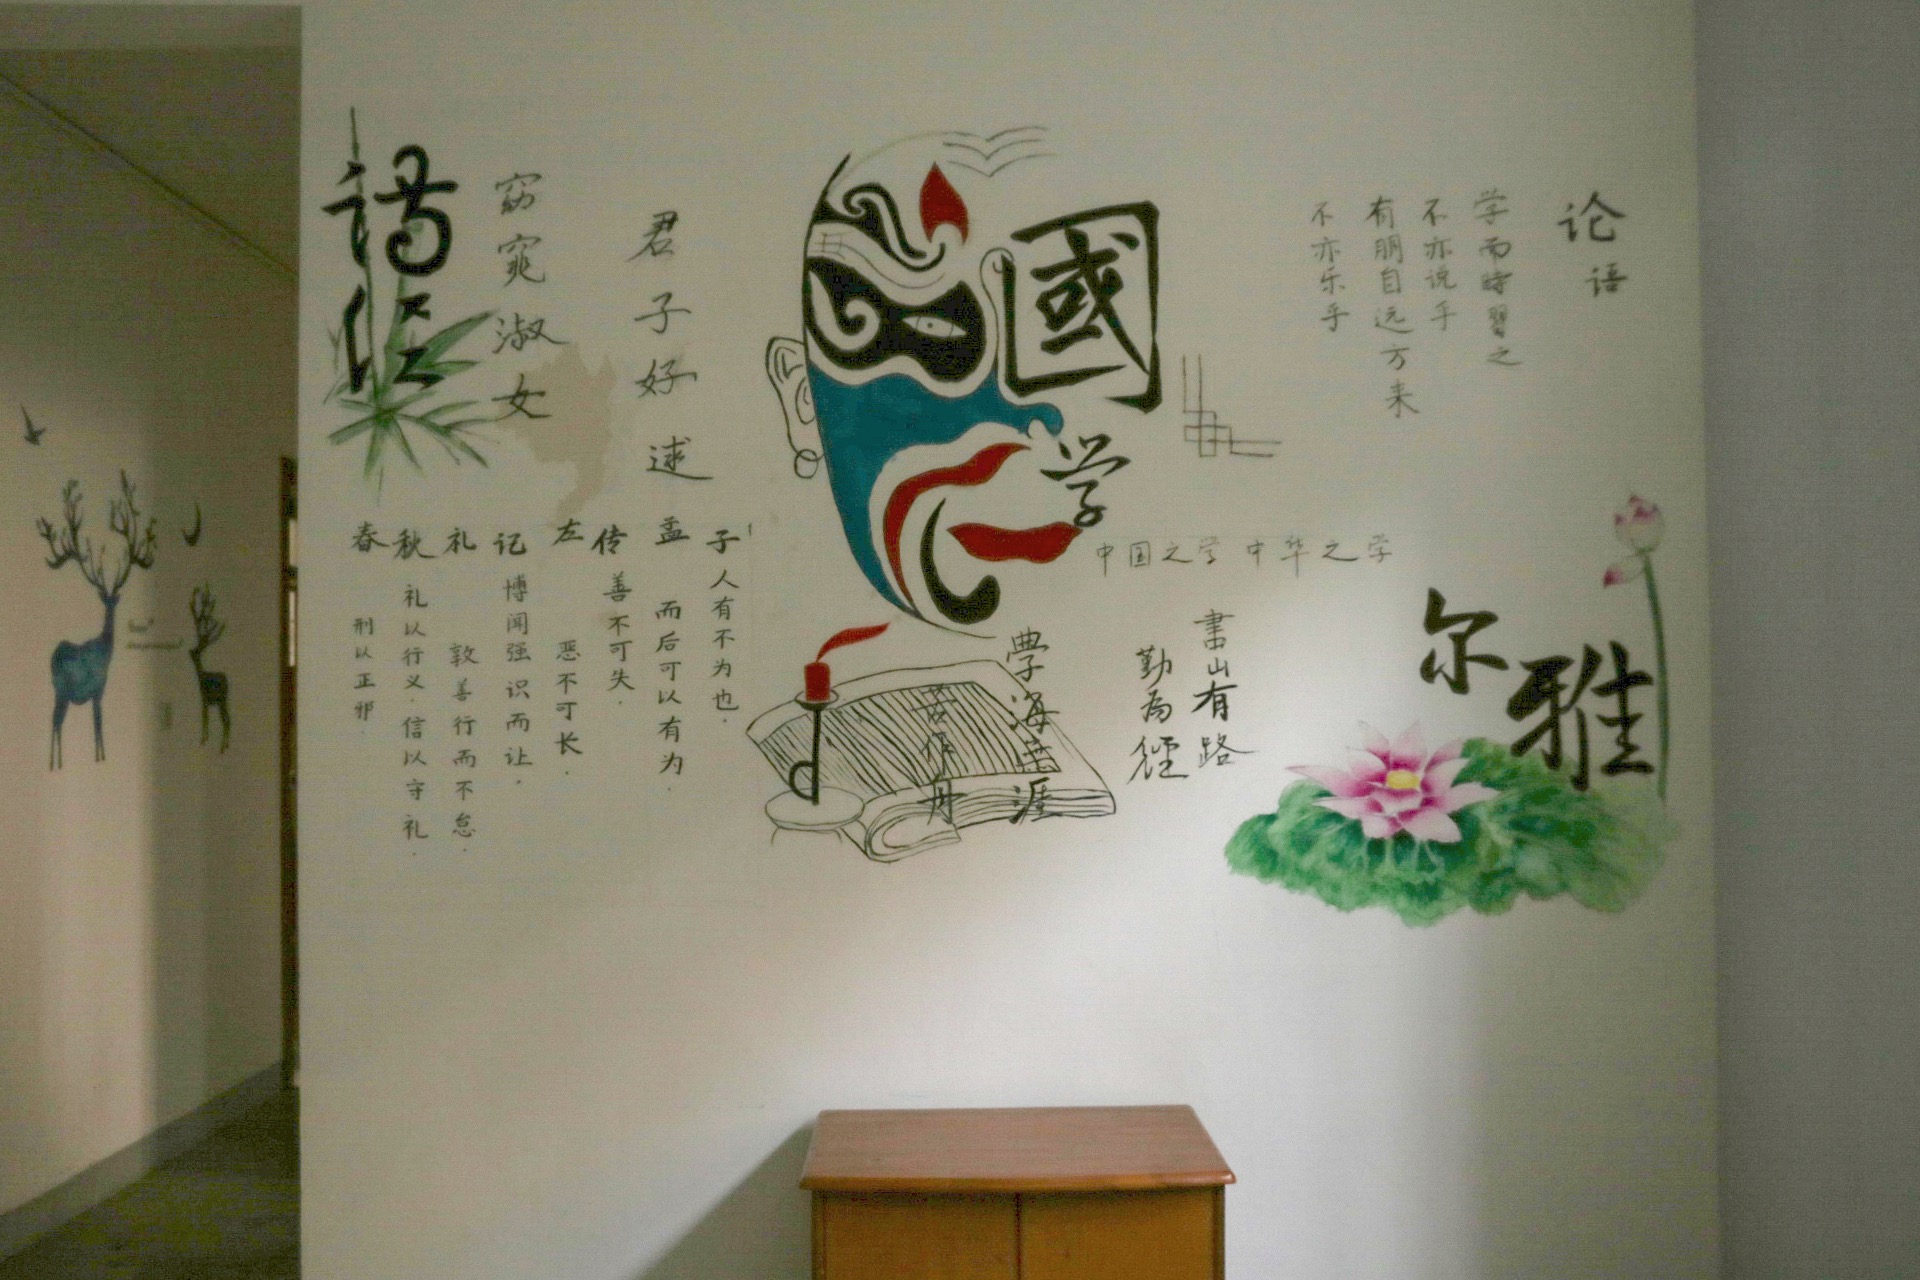 窈窕淑女
君子好逑
國学
论语
学而時習之
不亦说乎
有朋自远方来
不亦乐乎
中国之学 中华之学
春秋
礼以行义.信以守礼.
刑以正邪.
礼记
博闻强识而让.
敦善行而不怠.
左传
善不可失.
恶不可长.
孟子
人有不为也.
而后可以有为.
書山有路
勤為徑
學海無涯
苦作舟
尔雅